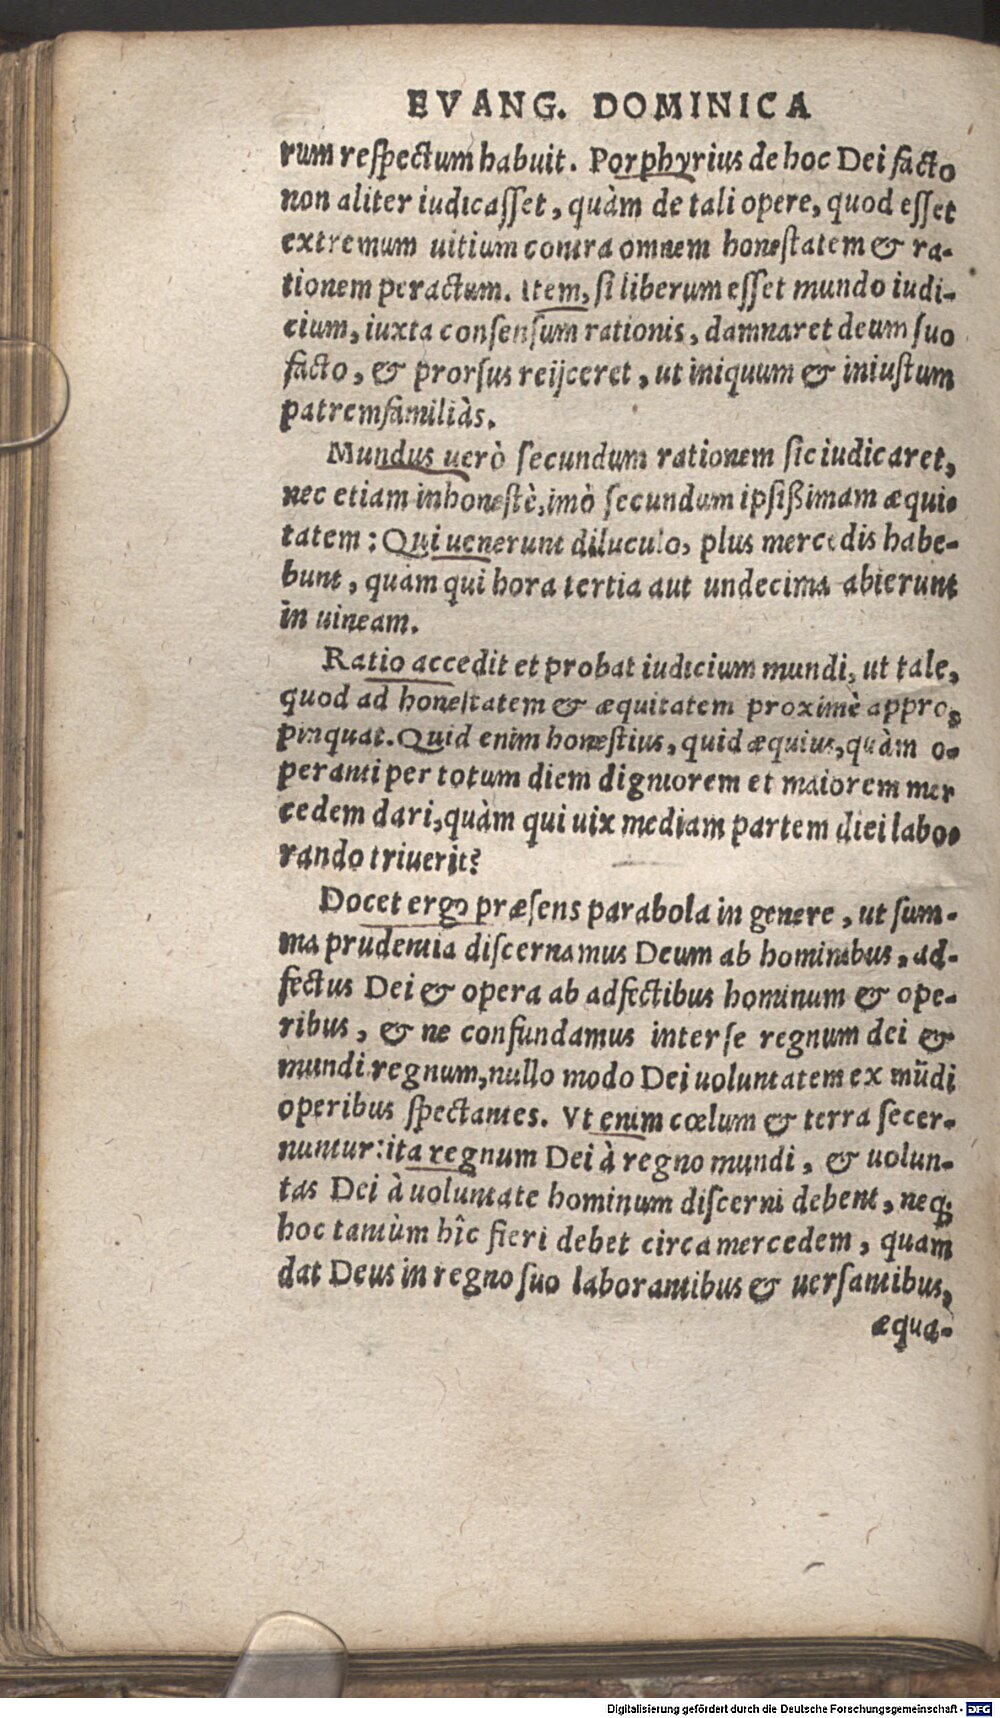 EVANG. DOMINICA
rum respectum habuit. Porphyrius de hoc Dei facto
non aliter iudicasset, quàm de tali opere, quod esset
extremum uitium contra omnem honestatem & ra-
tionem peractum. Item, si liberum esset mundo iudi-
cium, iuxta consensum rationis, damnaret deum suo
facto, & prorsus reijceret, ut iniquum & iniustum
patremfamiliàs.
Mundus uerò secundum rationem sic iudicaret,
nec etiam inhonestè, imò secundum ipsißimam æqui-
tatem: Qui uenerunt diluculo, plus mercedis habe-
bunt, quàm qui hora tertia aut undecima abierunt
in uineam.
Ratio accedit et probat iudicium mundi, ut tale,
quod ad honestatem & æquitatem proximè appro-
pinquat. Quid enim honestius, quid æquius, quàm o-
peranti per totum diem digniorem et maiorem mer
cedem dari, quàm qui uix mediam partem diei labo-
rando triuerit?
Docet ergo præsens parabola in genere, ut sum-
ma prudentia discernamus Deum ab hominibus, ad-
fectus Dei & opera ab adfectibus hominum & ope-
ribus, & ne confundamus inter se regnum dei &
mundi regnum, nullo modo Dei uoluntatem ex mũdi
operibus spectantes. Vt enim cœlum & terra secer-
nuntur: ita regnum Dei à regno mundi, & uolun-
tas Dei à uoluntate hominum discerni debent, neq;
hoc tantùm hîc fieri debet circa mercedem, quam
dat Deus in regno suo laborantibus & uersantibus,
æqua-
Digitalisierung gefördert durch die Deutsche Forschungsgemeinschaft - DFG